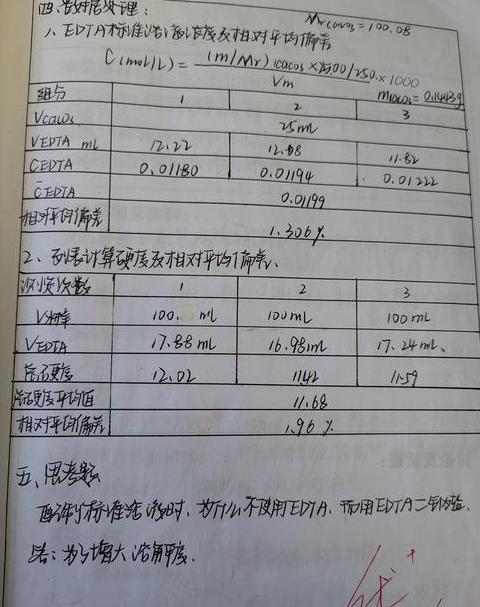 四、数据处理：
Mr CaCO3 = 100.08
1、EDTA标准溶液浓度及相对平均偏差
C(mol/L) = (m/Mr)CaCO3 × 25.00/250. × 1000
Vm
mCaCO3 = 0.1443g
组分 1 2 3
VCaCO3 25mL
VEDTA mL 12.22 12.08 11.82
CEDTA 0.01180 0.01194 0.01222
C̄EDTA 0.01199
相对平均偏差 1.306%
2、列表计算硬度及相对平均偏差、
测定次数 1 2 3
V水样 100. mL 100mL 100mL
VEDTA 17.88mL 16.98mL 17.24mL、
总硬度 12.02 11.42 11.59
总硬度平均值 11.68
相对平均偏差 1.96%
五、思考题
配制标准溶液时，为什么不使用EDTA，而用EDTA二钠盐.
答：为了增大溶解度.
优+